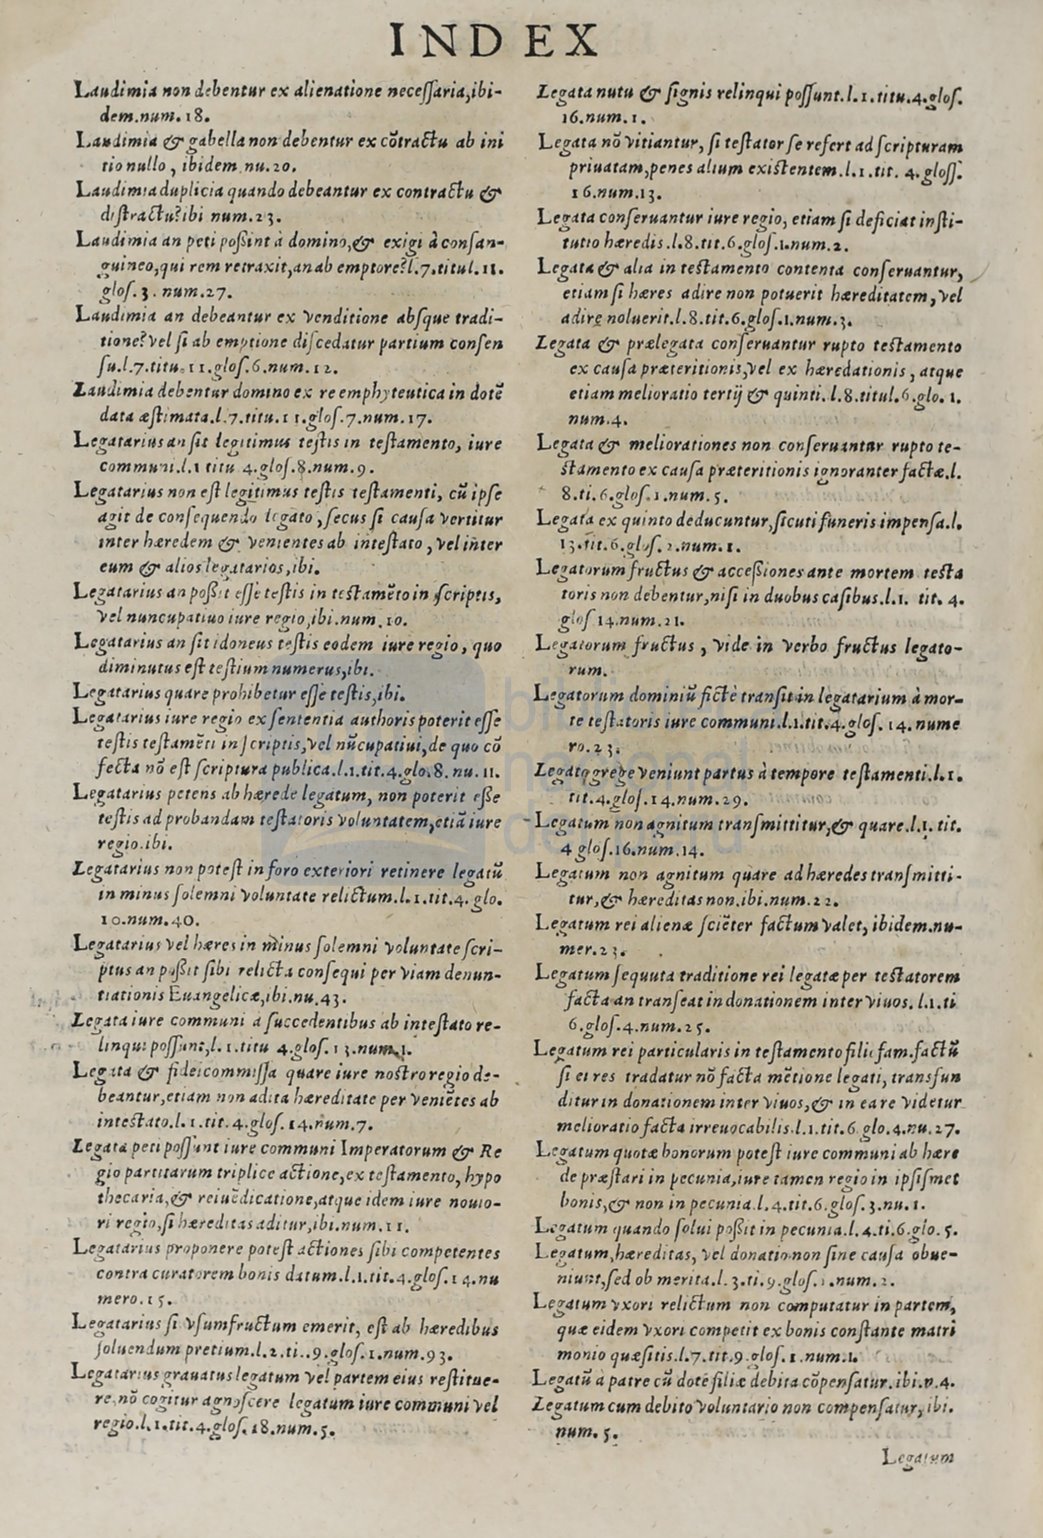 INDEX
Laudimia non debentur ex alienatione necessaria, ibi-
dem.num.18.
Laudimia & gabella non debentur ex cõtractu ab ini
tio nullo, ibidem nu.20.
Laudimia duplicia quando debeantur ex contractu &
distractu? ibi num.23.
Laudimia an peti possint à domino, & exigi à consan-
guineo, qui rem retraxit, an ab emptore? l.7.titul.11.
glos.3.num.27.
Laudimia an debeantur ex venditione absque tradi-
tione? vel si ab emptione discedatur partium consen
su.l.7.titu.11.glos.6.num.12.
Laudimia debentur domino ex re emphyteutica in dotẽ
data æstimata.l.7.titu.11.glos.7.num.17.
Legatarius an sit legitimus testis in testamento, iure
communi.l.1 titu 4.glos.8.num.9.
Legatarius non est legitimus testis testamenti, cũ ipse
agit de consequendo legato, secus si causa vertitur
inter hæredem & venientes ab intestato, vel inter
eum & alios legatarios, ibi.
Legatarius an possit esse testis in testamẽto in scriptis,
vel nuncupatiuo iure regio, ibi.num.10.
Legatarius an sit idoneus testis eodem iure regio, quo
diminutus est testium numerus, ibi.
Legatarius quare prohibetur esse testis, ibi.
Legatarius iure regio ex sententia authoris poterit esse
testis testamẽti in scriptis, vel nũcupatiui, de quo cõ
fecta nõ est scriptura publica.l.1.tit.4.glo.8.nu.11.
Legatarius petens ab hærede legatum, non poterit esse
testis ad probandam testatoris voluntatem, etiã iure
regio.ibi.
Legatarius non potest in foro exteriori retinere legatũ
in minus solemni voluntate relictum.l.1.tit.4.glo.
10.num.40.
Legatarius vel hæres in minus solemni voluntate scri-
ptus an possit sibi relicta consequi per viam denun-
tiationis Euangelicæ, ibi.nu.43.
Legata iure communi à succedentibus ab intestato re-
linqui possunt, l.1.titu 4.glos.13.num.1.
Legata & fideicommissa quare iure nostro regio de-
beantur, etiam non adita hæreditate per veniẽtes ab
intestato.l.1.tit.4.glos.14.num.7.
Legata peti possunt iure communi Imperatorum & Re
gio partitarum triplice actione, ex testamento, hypo
thecaria, & rei uẽdicatione, atque idem iure nouio-
ri regio, si hæreditas aditur, ibi.num.11.
Legatarius proponere potest actiones sibi competentes
contra curatorem bonis datum.l.1.tit.4.glos.14.nu
mero.15.
Legatarius si vsumfructum emerit, est ab hæredibus
soluendum pretium.l.2.ti..9.glos.1.num.93.
Legatarius grauatus legatum vel partem eius restitue-
re, nõ cogitur agnoscere legatum iure communi vel
regio.l.1.tit.4.glos.18.num.5.
Legata nutu & signis relinqui possunt.l.1.titu.4.glos.
16.num.1.
Legata nõ vitiantur, si testator se refert ad scripturam
priuatam, penes alium existentem.l.1.tit.4.gloss.
16.num.13.
Legata conseruantur iure regio, etiam si deficiat insti-
tutio hæredis.l.8.tit.6.glos.1.num.2.
Legata & alia in testamento contenta conseruantur,
etiam si hæres adire non potuerit hæreditatem, vel
adire noluerit.l.8.tit.6.glos.1.num.3.
Legata & prælegata conseruantur rupto testamento
ex causa præteritionis, vel ex hæredationis, atque
etiam melioratio tertij & quinti.l.8.titul.6.glo.1.
num.4.
Legata & meliorationes non conseruantur rupto te-
stamento ex causa præteritionis ignoranter factæ.l.
8.ti.6.glos.1.num.5.
Legata ex quinto deducuntur, sicuti funeris impensa.l.
13.tit.6.glos.2.num.1.
Legatorum fructus & accessiones ante mortem testa
toris non debentur, nisi in duobus casibus.l.1. tit.4.
glos 14.num.21.
Legatorum fructus, vide in verbo fructus legato-
rum.
Legatorum dominiũ fictè transit in legatarium à mor-
te testatoris iure communi.l.1.tit.4.glos.14.nume
ro.23.
Legato grege veniunt partus à tempore testamenti.l.1.
tit.4.glos.14.num.29.
Legatum non agnitum transmittitur, & quare.l.1.tit.
4 glos.16.num.14.
Legatum non agnitum quare ad hæredes transmitti-
tur, & hæreditas non.ibi.num.22.
Legatum rei alienæ sciẽter factum valet, ibidem.nu-
mer.23.
Legatum sequuta traditione rei legatæ per testatorem
facta an transeat in donationem inter viuos.l.1.ti
6.glos.4.num.25.
Legatum rei particularis in testamento filii fam.factũ
si ei res tradatur nõ facta mẽtione legati, transfun
ditur in donationem inter viuos, & in ea re videtur
melioratio facta irreuocabilis.l.1.tit.6.glo.4.nu.27.
Legatum quotæ bonorum potest iure communi ab hære
de præstari in pecunia, iure tamen regio in ipsismet
bonis, & non in pecunia.l.4.tit.6.glos.3.nu.1.
Legatum quando solui possit in pecunia.l.4.ti.6.glo.5.
Legatum, hæreditas, vel donatio non sine causa obue-
niunt, sed ob merita.l.3.ti.9.glos.1.num.2.
Legatum vxori relictum non computatur in partem,
quæ eidem vxori competit ex bonis constante matri
monio quæsitis.l.7.tit.9.glos.1.num.1.
Legatũ à patre cũ dote filiæ debita cõpensatur.ibi.n.4.
Legatum cum debito voluntario non compensatur, ibi.
num.5.
Legatum